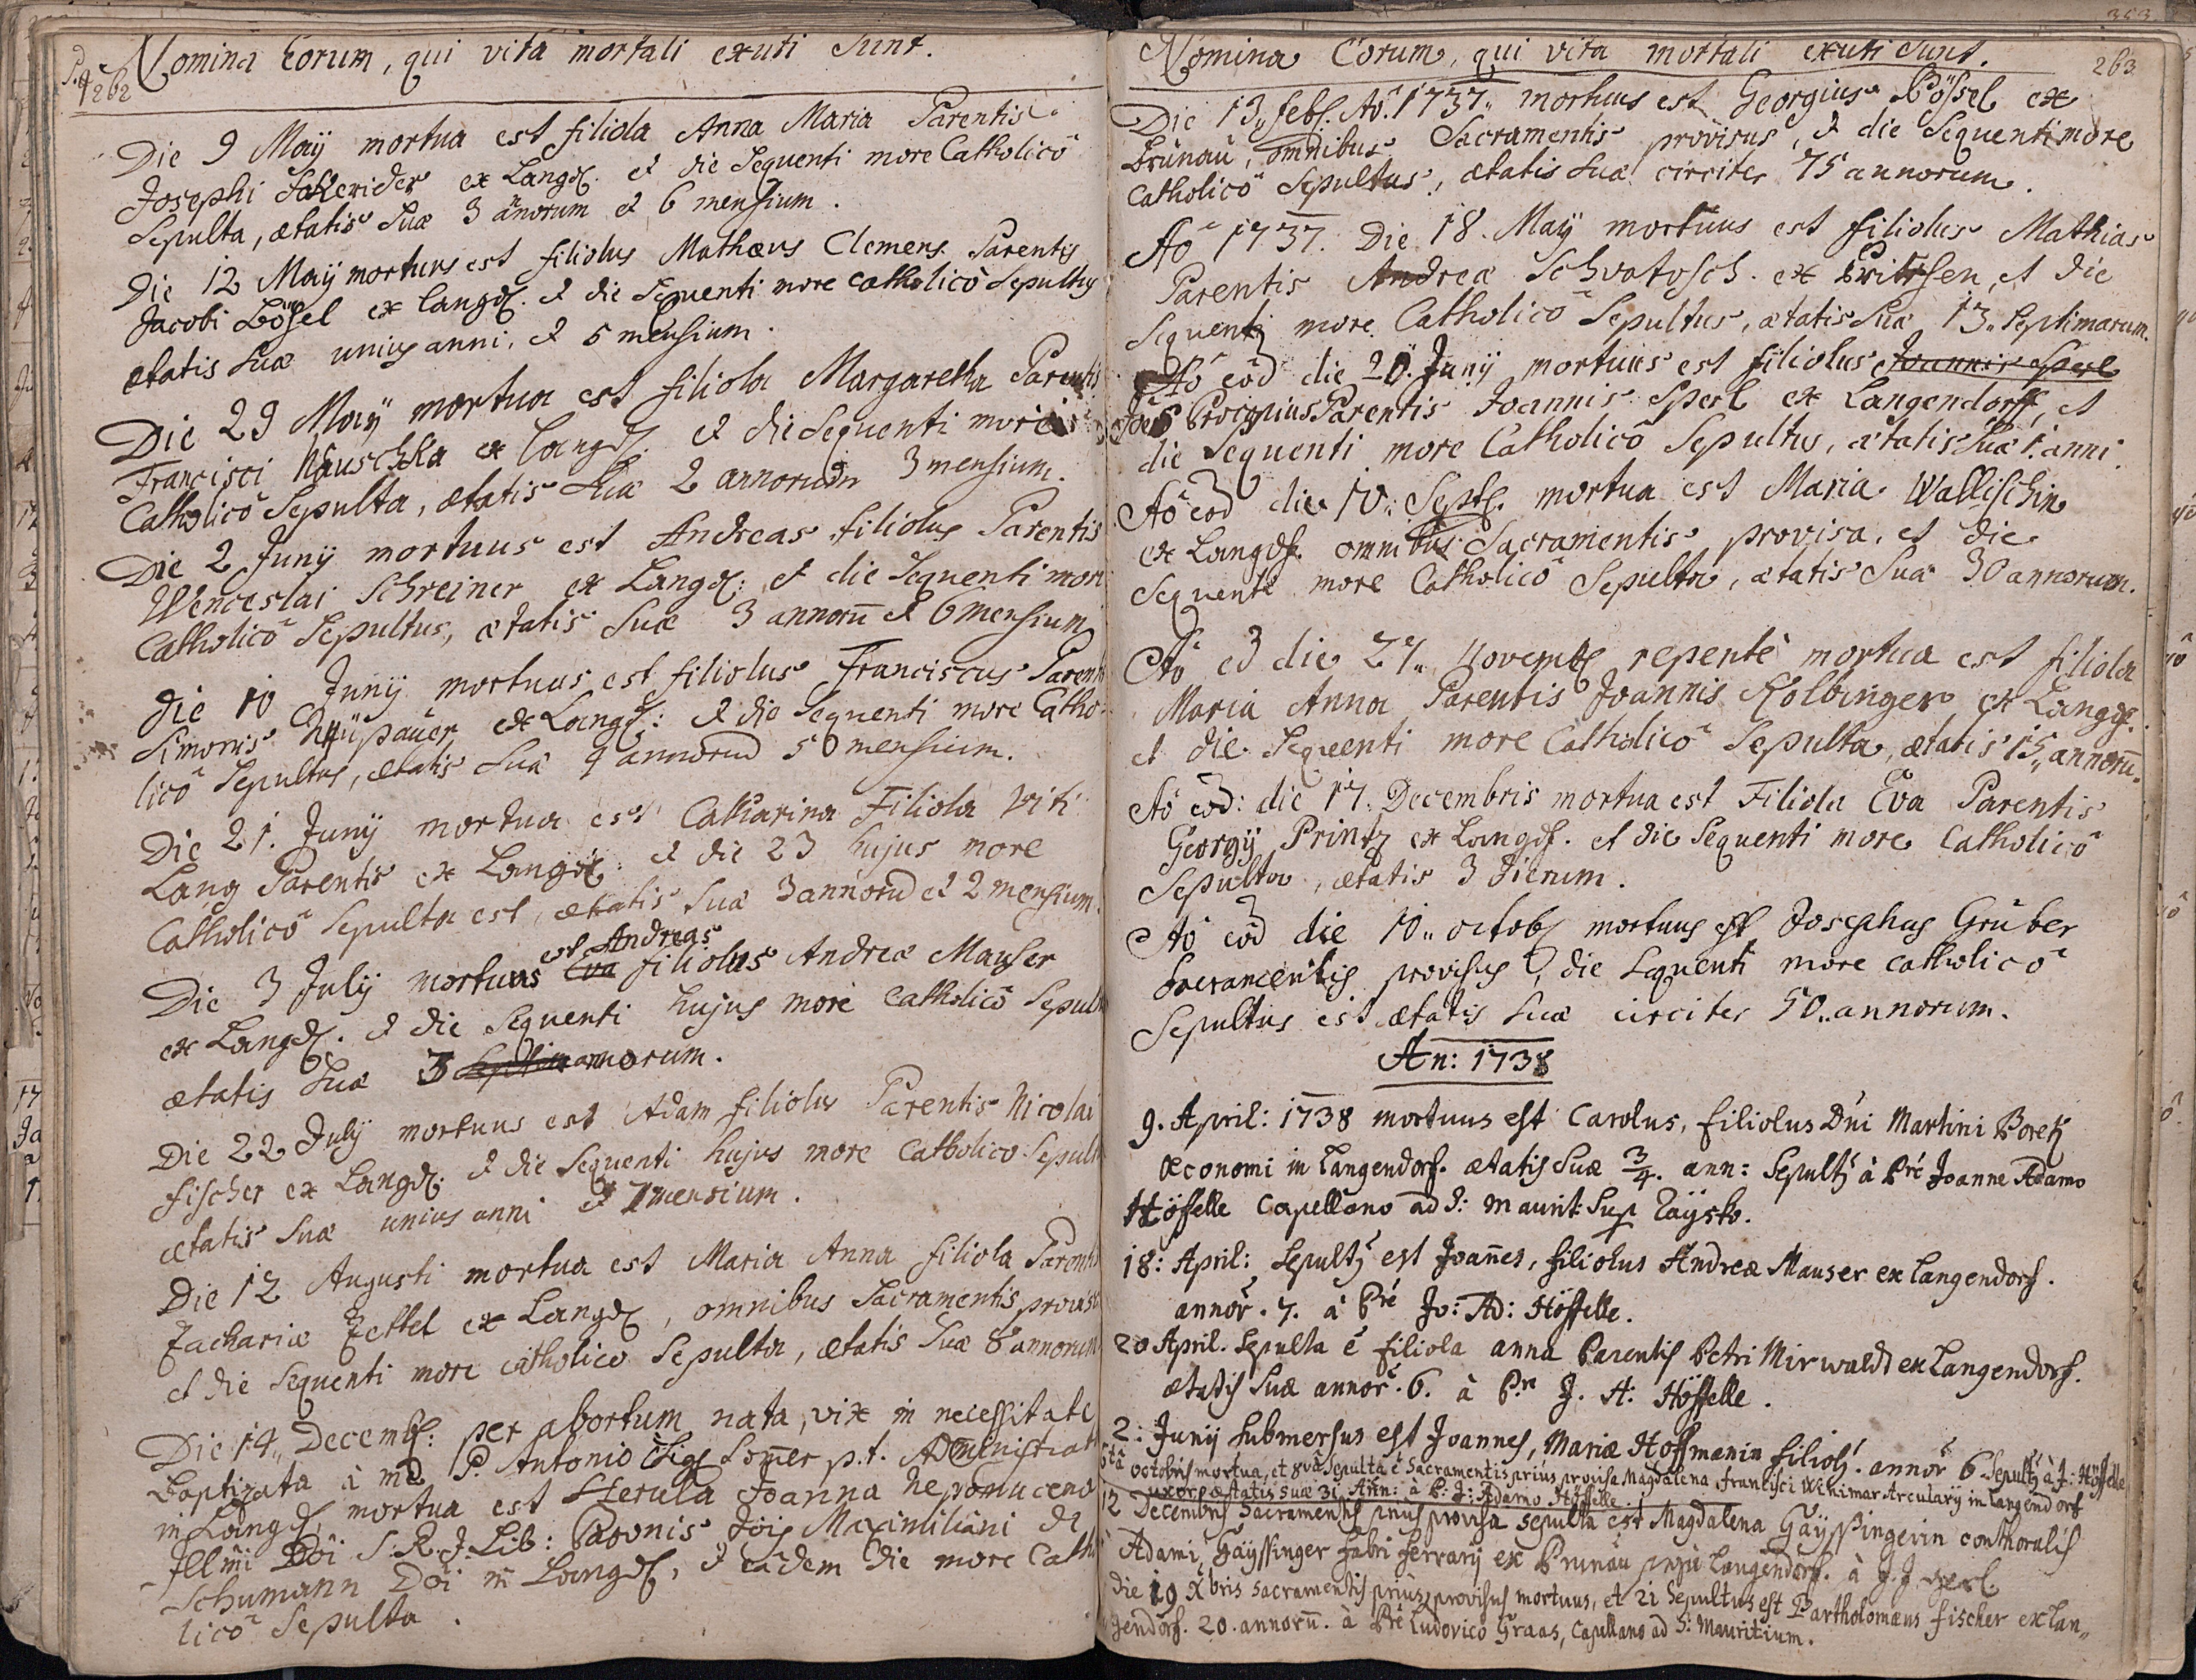 262
Nomina Eorum, qui vitâ mortali exuti sunt.
Die 9 Maÿ mortua est filiola Anna Maria Parentis
Josephi ex Langd. et die Sequenti more Catholicô
Sepulta, ætatis Suæ 3 anorum et 6 mensium.
Die 12 Maÿ mortuus est filiolus Mathæus Clemens Parentis
Jacobi Bösel ex Langd. et die Sequenti more catholicô Sepultus
ætatis Suæ unius anni, et 5 mensium.
Die 29 Maÿ mortua est filiola Margaretha Parentis
Francisci Hauschka ex Langd. et die Sequenti more
Catholicô Sepulta, ætatis Suæ 2 annorum 3 mensium.
Die 2 Junÿ mortuus est Andreas filiolus Parentis
Wenceslai Schreiner ex Langd: et die Sequenti more
Catholicô Sepultus, ætatis Suæ 3 annorū et 6 mensium
Die 10 Junÿ mortuus est filiolus Franciscus Parentis
Simonis ex Langd: et die Sequenti more Catho-
licô Sepultus, ætatis Suæ 4 annorum 5 mensium.
Die 21. Junÿ mortua est Catharina Filiola Viti
Lang Parentis ex Langd: et die 23 hujus more
Catholicô Sepulta est, ætatis Suæ 3 annorum et 2 mensium.
est Andreas
Die 3 Julÿ mortuus Eva filiolus Andreæ Mauser
ex Langd. et die Sequenti hujus more Catholicô Sepult
ætatis Suæ 3 annorum.
Die 22 Julÿ mortuus est Adam filiolus Parentis Nicolai
Fischer ex Langd. et die Sequenti hujus more Catholico Sepult
ætatis Suæ unius anni et 7 mensium.
Die 12 Augusti mortua est Maria Anna filiola Parentis
Zachariæ Zettel ex Langd, omnibus Sacramentis provisa
et die Sequenti more catholico Sepulta, ætatis Suæ 8 annorum
Die 14,, Decemb: per abortum nata, vix in necessitate
Baptizata à me P. Antonio p.t. Administrat
in Langd, mortua est Herula Joanna Nepomucena
Illmi Dni S:R:J:Lib: Baronis Jois Maximiliani de
Schumann Dni in Langd, et eâdem die more Catho
licô Sepulta.
263
Nomina Eorum, qui vita mortali exuti sunt.
Die 13,, feb. Aô 1737,, mortuus est Georgius Bössel ex
Brunau, omnibus Sacramentis provisus, et die Sequenti more
Catholicô Sepultus, ætatis Suæ circiter 75 annorum.
Aô 1737. Die 18. Maÿ mortuus est filiolus Mathias
Parentis Andreæ Schvatosch. ex et die
Sequenti more Catholicô Sepultus, ætatis Suæ 13,, Septimarum.
Aô eôd die 20. Junÿ mortuus est filiolus Joannis Sperl
Procopius Parentis Joannis Sperl ex Langendorff, et
die Sequenti more Catholicô Sepultus, ætatis Suæ 1. anni.
Aô eôd die 10,, Sept. mortua est Maria Wallischin
ex Langdf. omnibus Sacramentis provisa, et die
Sequenti more Catholicô Sepulta, ætatis Suæ 30 annorum.
Aô eôd die 27,, Novemb repentè mortua est filiola
Maria Anna Parentis Joannis Kolbinger ex Langdf.
et die Sequenti more Catholicô Sepulta, ætatis 15,, annorū.
Aô eôd: die 17. Decembris mortua est Filiola Eva Parentis
Georgÿ Printz ex Langdf. et die Sequenti more Catholicô
Sepulta, ætatis 3 dierum.
Aô eôd die 10,, octob mortuus est Josephus Gruber
Sacramentis provisus, die Sequenti more catholicô
Sepultus est ætatis Suæ circiter 50,, annorum.
An: 1738
9. April: 1738 mortuus est Carolus, filiolus Dni Martini Boretz
Œconomi in Langendorf. ætatis Suæ 3/4. ann: Sepult9 à Pre Joanne Adamo
Höffelle Capellano ad S: Maurit: Sup
18: April: Sepult9 est Joañes, filiolus Andreæ Mauser ex Langendorf.
annor. 7. à Pre Jo: Ad: Höffelle.
20 April. Sepulta ẽ filiola anna Parentis Petri Mirwaldt ex Langendorf.
ætatis Suæ annor. 6. à Pre J. A: Höffelle.
2: Junÿ Submersus est Joannes, Mariæ Hoffmanin filiol9. annor 6 Sepult9 à J: Höffelle
6tâ octobris mortua, et 8vâ Sepulta ẽ Sacramentis prius provisa Magdalena Francisci Winimar Arcularÿ in Langendorf
uxor ætatis Suæ 31 Ann: à P: J: Adamo Höffelle.
12 Decembris Sacramentis prius provisa sepulta est Magdalena Gäyssingerin conthoralis
Adami Gäyssinger fabri ferrarÿ ex Brunau prope Langendorf. à J. J.
die 19 Xbris Sacramentis prius provisus mortuus, et 21 Sepultus est Bartholomæus Fischer ex Lan,,
gendorf. 20. annorū. à Pre Ludovico Graas, Capellano ad S: Mauritium.